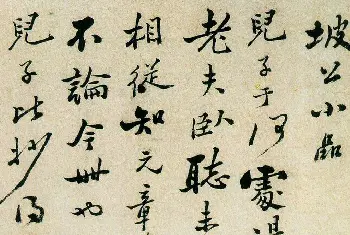 坡公小品
兒子于何處得
老夫臥聽未
相從知元章
不論今世也
兒子比抄得